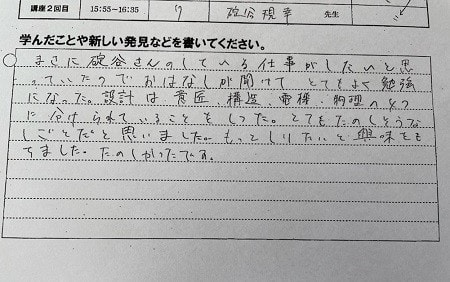 講座2回目 15:55-16:35 7 碇谷規幸 先生
学んだことや新しい発見などを書いてください。
まさに碇谷さんのしている仕事がしたいと思
っていたのでおはなしが聞けて、とてもよく勉強
になった。設計は意匠、構造、電機、物理の4つ
に分けられていることをしった。とてもたのしそうな
しごとだと思いました。もっとしりたいと興味をも
ちました。たのしかったです。